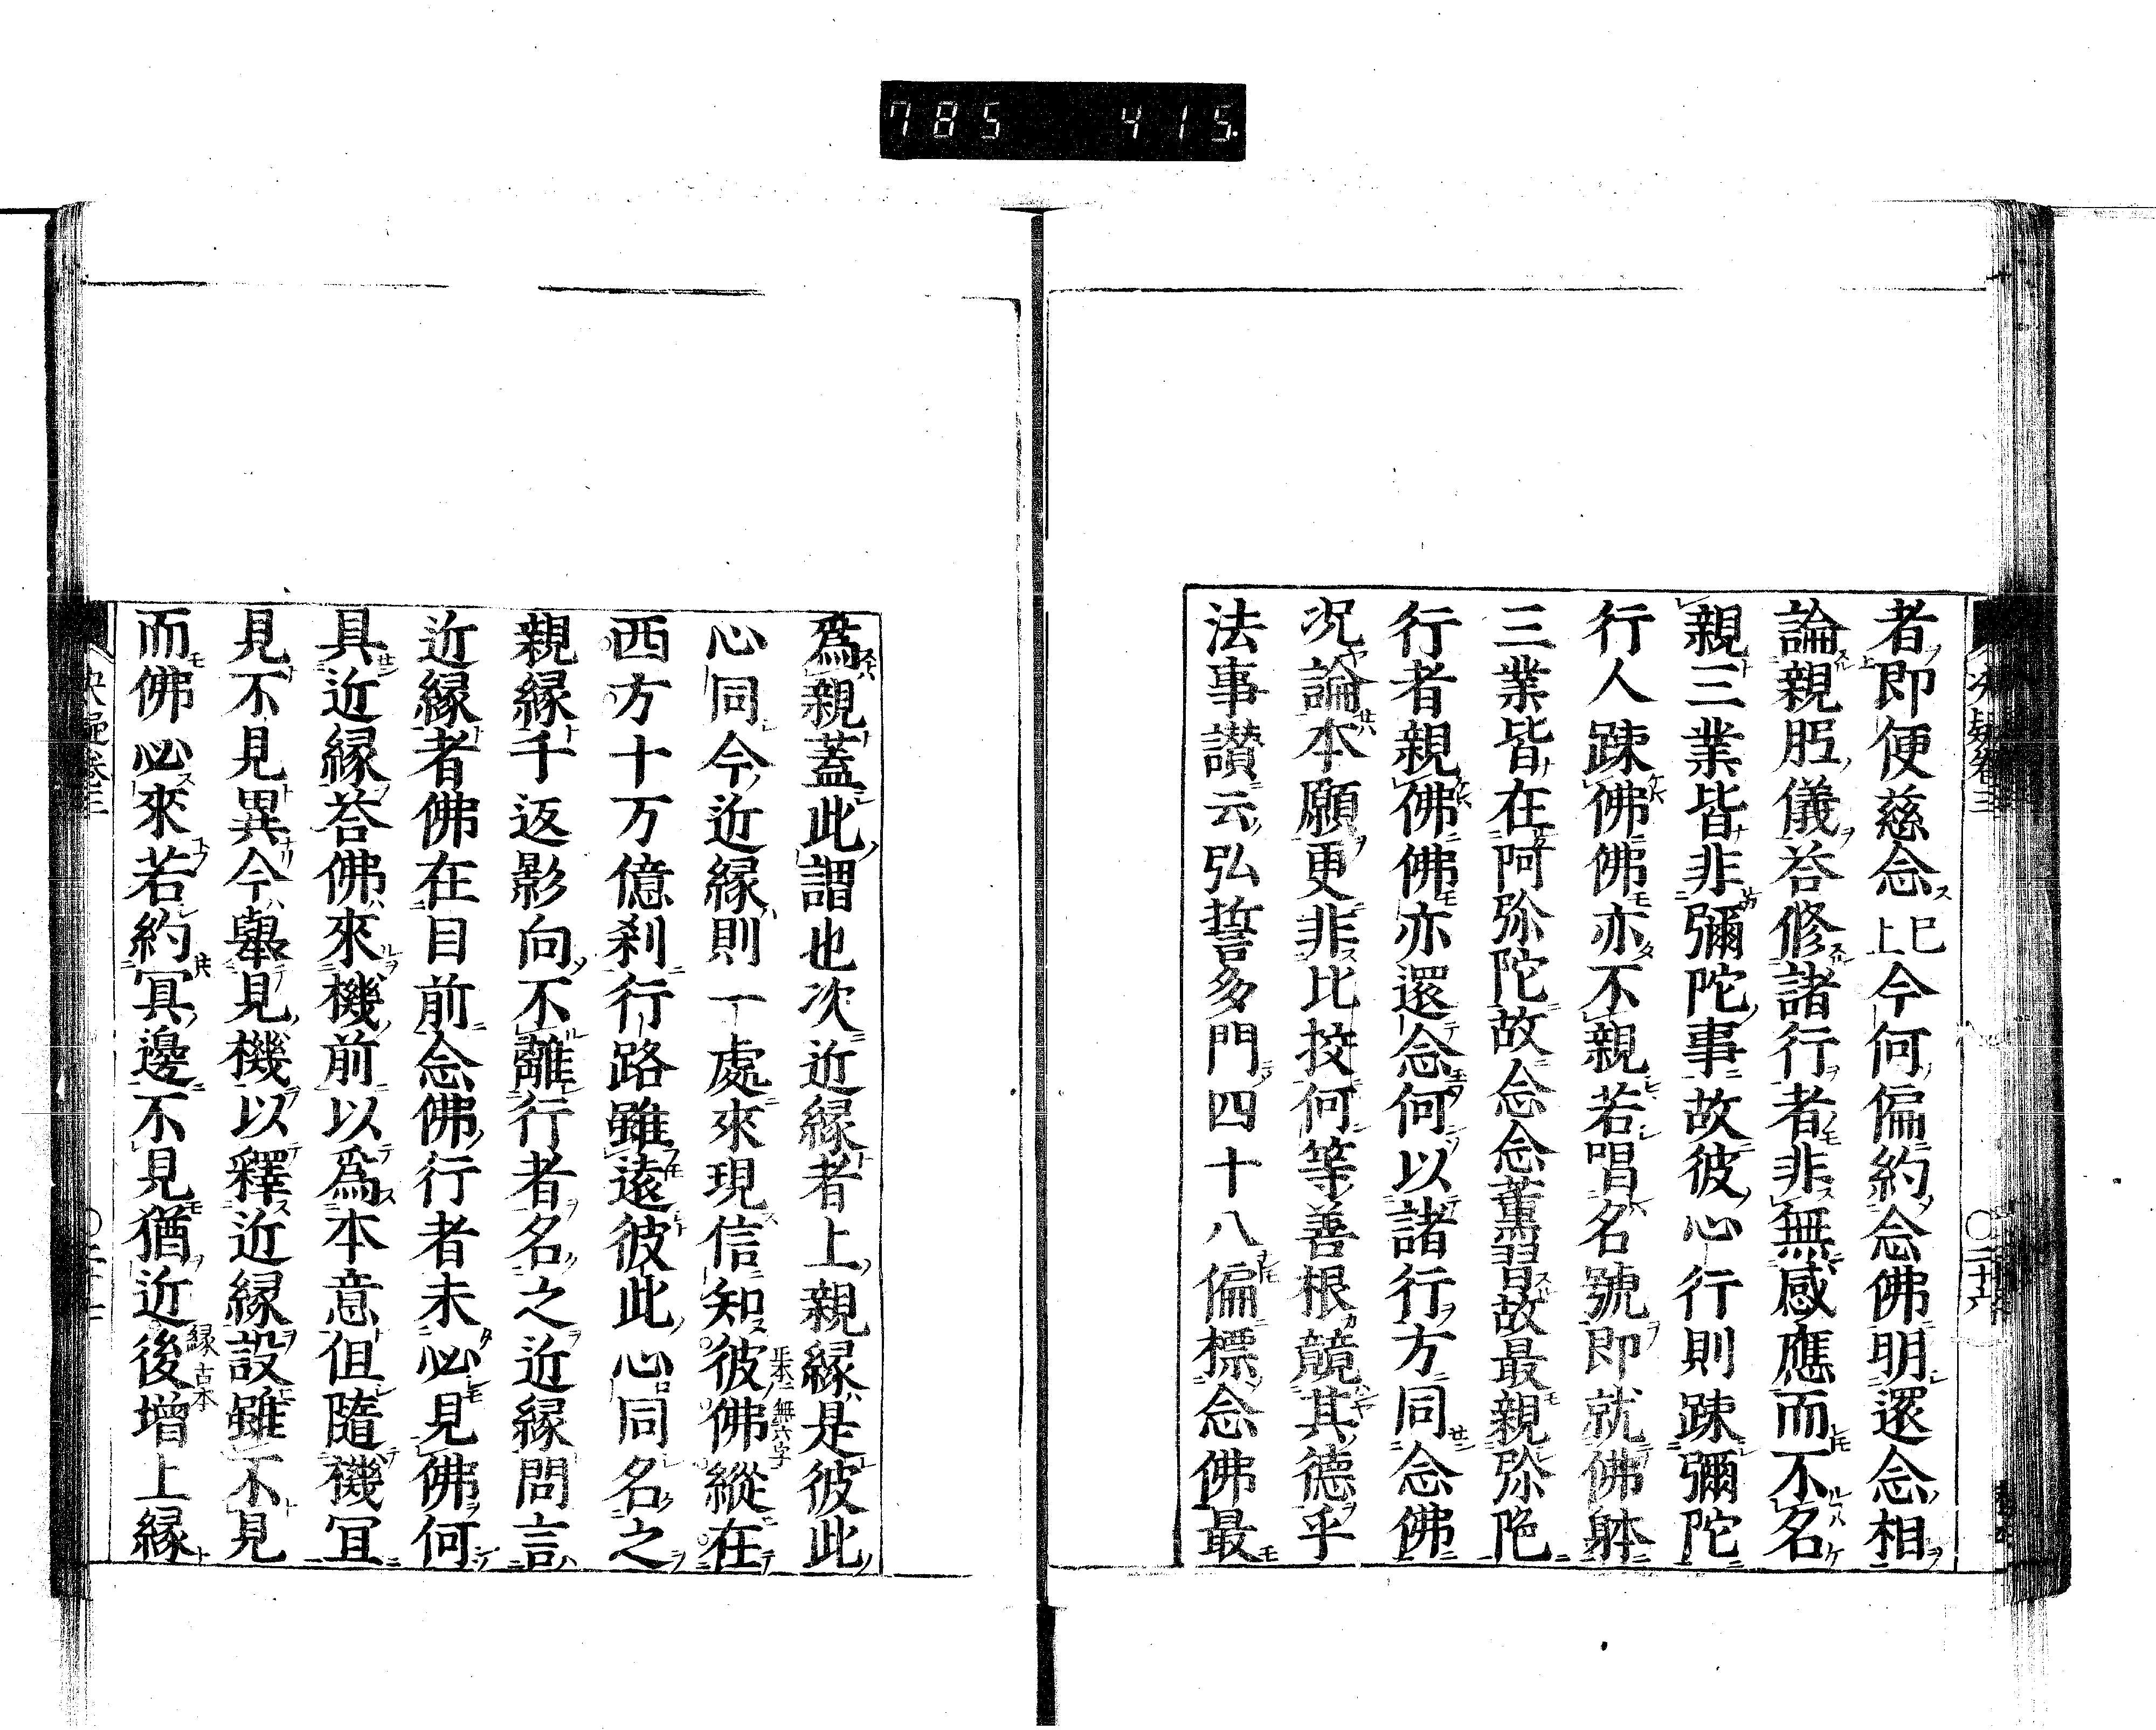 785 415.
者即便慈念已上今何偏約念佛明還念相
論親眤儀荅修諸行者非無感應而不名
親三業皆非彌陀事故彼心行則踈彌陀
行人踈佛佛亦不親若唱名號即就佛躰
三業皆在阿弥陀故念念薫習故最親弥陁
行者親佛佛亦還念何以諸行方同念佛
况論本願更非比挍何等善根競其德乎
法事讃云弘誓多門四十八偏標念佛最
爲親蓋此謂也次近縁者上親縁是彼此
心同今近縁則一處來現信知彼佛縱在
正本ニ無六字
西方十万億刹行路雖遠彼此心同名之
親縁千返影向不離行者名之近縁問言
近縁者佛在目前念佛行者未必見佛何
具近縁荅佛來機前以爲本意但隨機冝
見不見異今擧見機以釋近縁設雖不見
而佛必來若約冥邊不見猶近後增上縁
縁古本